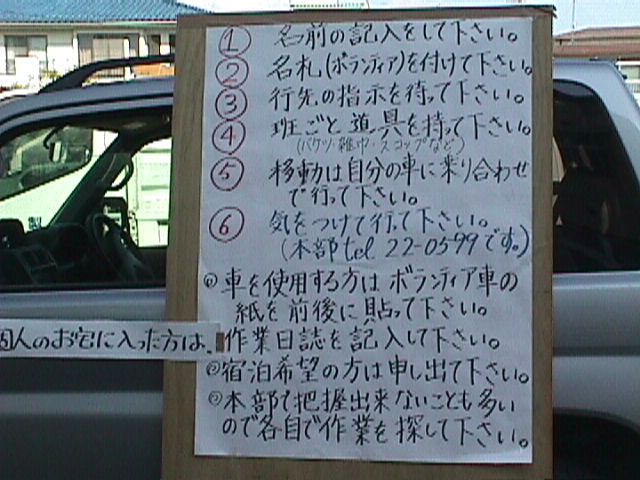 ① 名前の記入をして下さい。
② 名札(ボランティア)を付けて下さい。
③ 行先の指示を待って下さい。
④ 班ごと道具を持って下さい。
(バケツ・雑巾・スコップなど)
⑤ 移動は自分の車に乗り合わせ
で行って下さい。
⑥ 気をつけて行って下さい。
(本部tel 22-0599です。)
車を使用する方はボランティア車の
紙を前後に貼って下さい。
個人のお宅に入った方は、作業日誌を記入して下さい。
宿泊希望の方は申し出て下さい。
本部で把握出来ないことも多い
ので各自で作業を探して下さい。